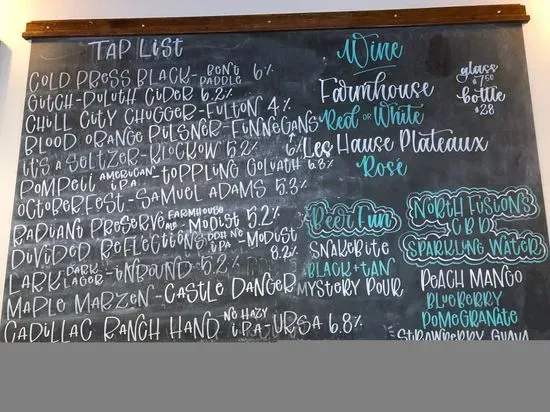 TAP LIST
COLD PRESS BLACK - BENT PADDLE 6%
GITCH - DULUTH CIDER 6.2%
CHILL CITY CHUGGER - FULTON 4%
BLOOD ORANGE PILSNER - FINNEGANS 6%
IT'S A SELTZER - BLACKOW 5.2%
POMPEII AMERICAN I.P.A - TOPPLING GOLIATH 6.3%
OCTOBERFEST - SAMUEL ADAMS 5.3%
RADIANT PRESERVE FARMHOUSE ALE - MODIST 5.2%
DIVIDED REFLECTIONS DDH NE IPA - MODIST 8.2%
LARK DARK LAGER - INBOUND 5.2%
MAPLE MARZEN - CASTLE DANGER
CADILLAC RANCH HAND NO HAZY I.P.A - URSA 6.8%
Wine
glass $7.50
bottle $28
Farmhouse
Red OR White
Les Hause Plateaux
Rosé
Beer Fun
SNAKEBITE
BLACK + TAN
MYSTERY POUR
NORTH FUSIONS
CBD
SPARKLING WATER
PEACH MANGO
BLUEBERRY
POMEGRANATE
STRAWBERRY GUAVA